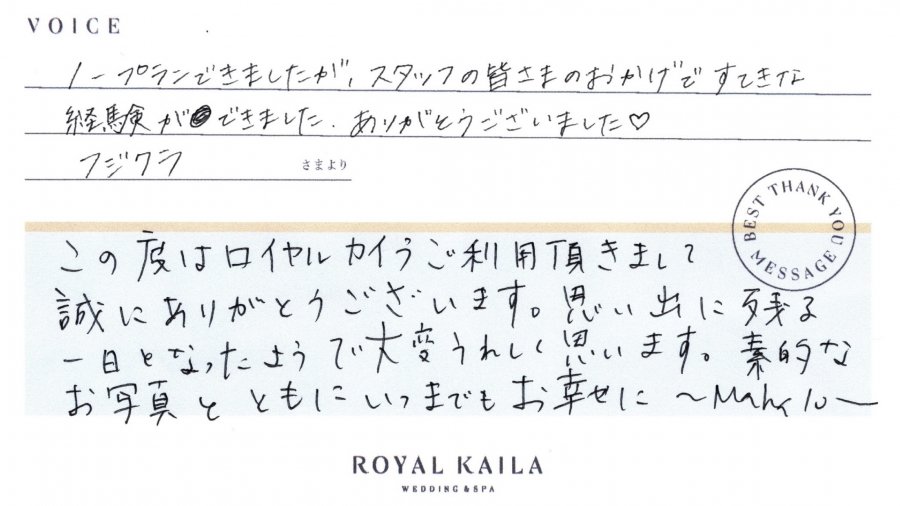 VOICE
ノープランできましたが、スタッフの皆さまのおかげですてきな
経験ができました。ありがとうございました♡
フジワラ さまより
BEST THANK YOU MESSAGE
この度はロイヤルカイラご利用頂きまして
誠にありがとうございます。思い出に残る
一日となったようで大変うれしく思います。素的な
お写真とともにいつまでもお幸せに 〜Mahalo〜
ROYAL KAILA
WEDDING & SPA